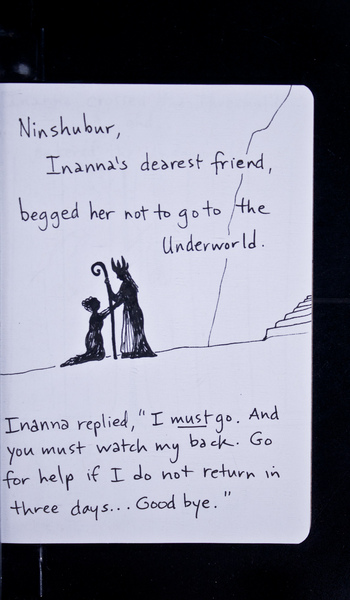 Ninshubur,
Inanna's dearest friend,
begged her not to go to the
Underworld.
Inanna replied, "I must go. And
you must watch my back. Go
for help if I do not return in
three days... Good bye."